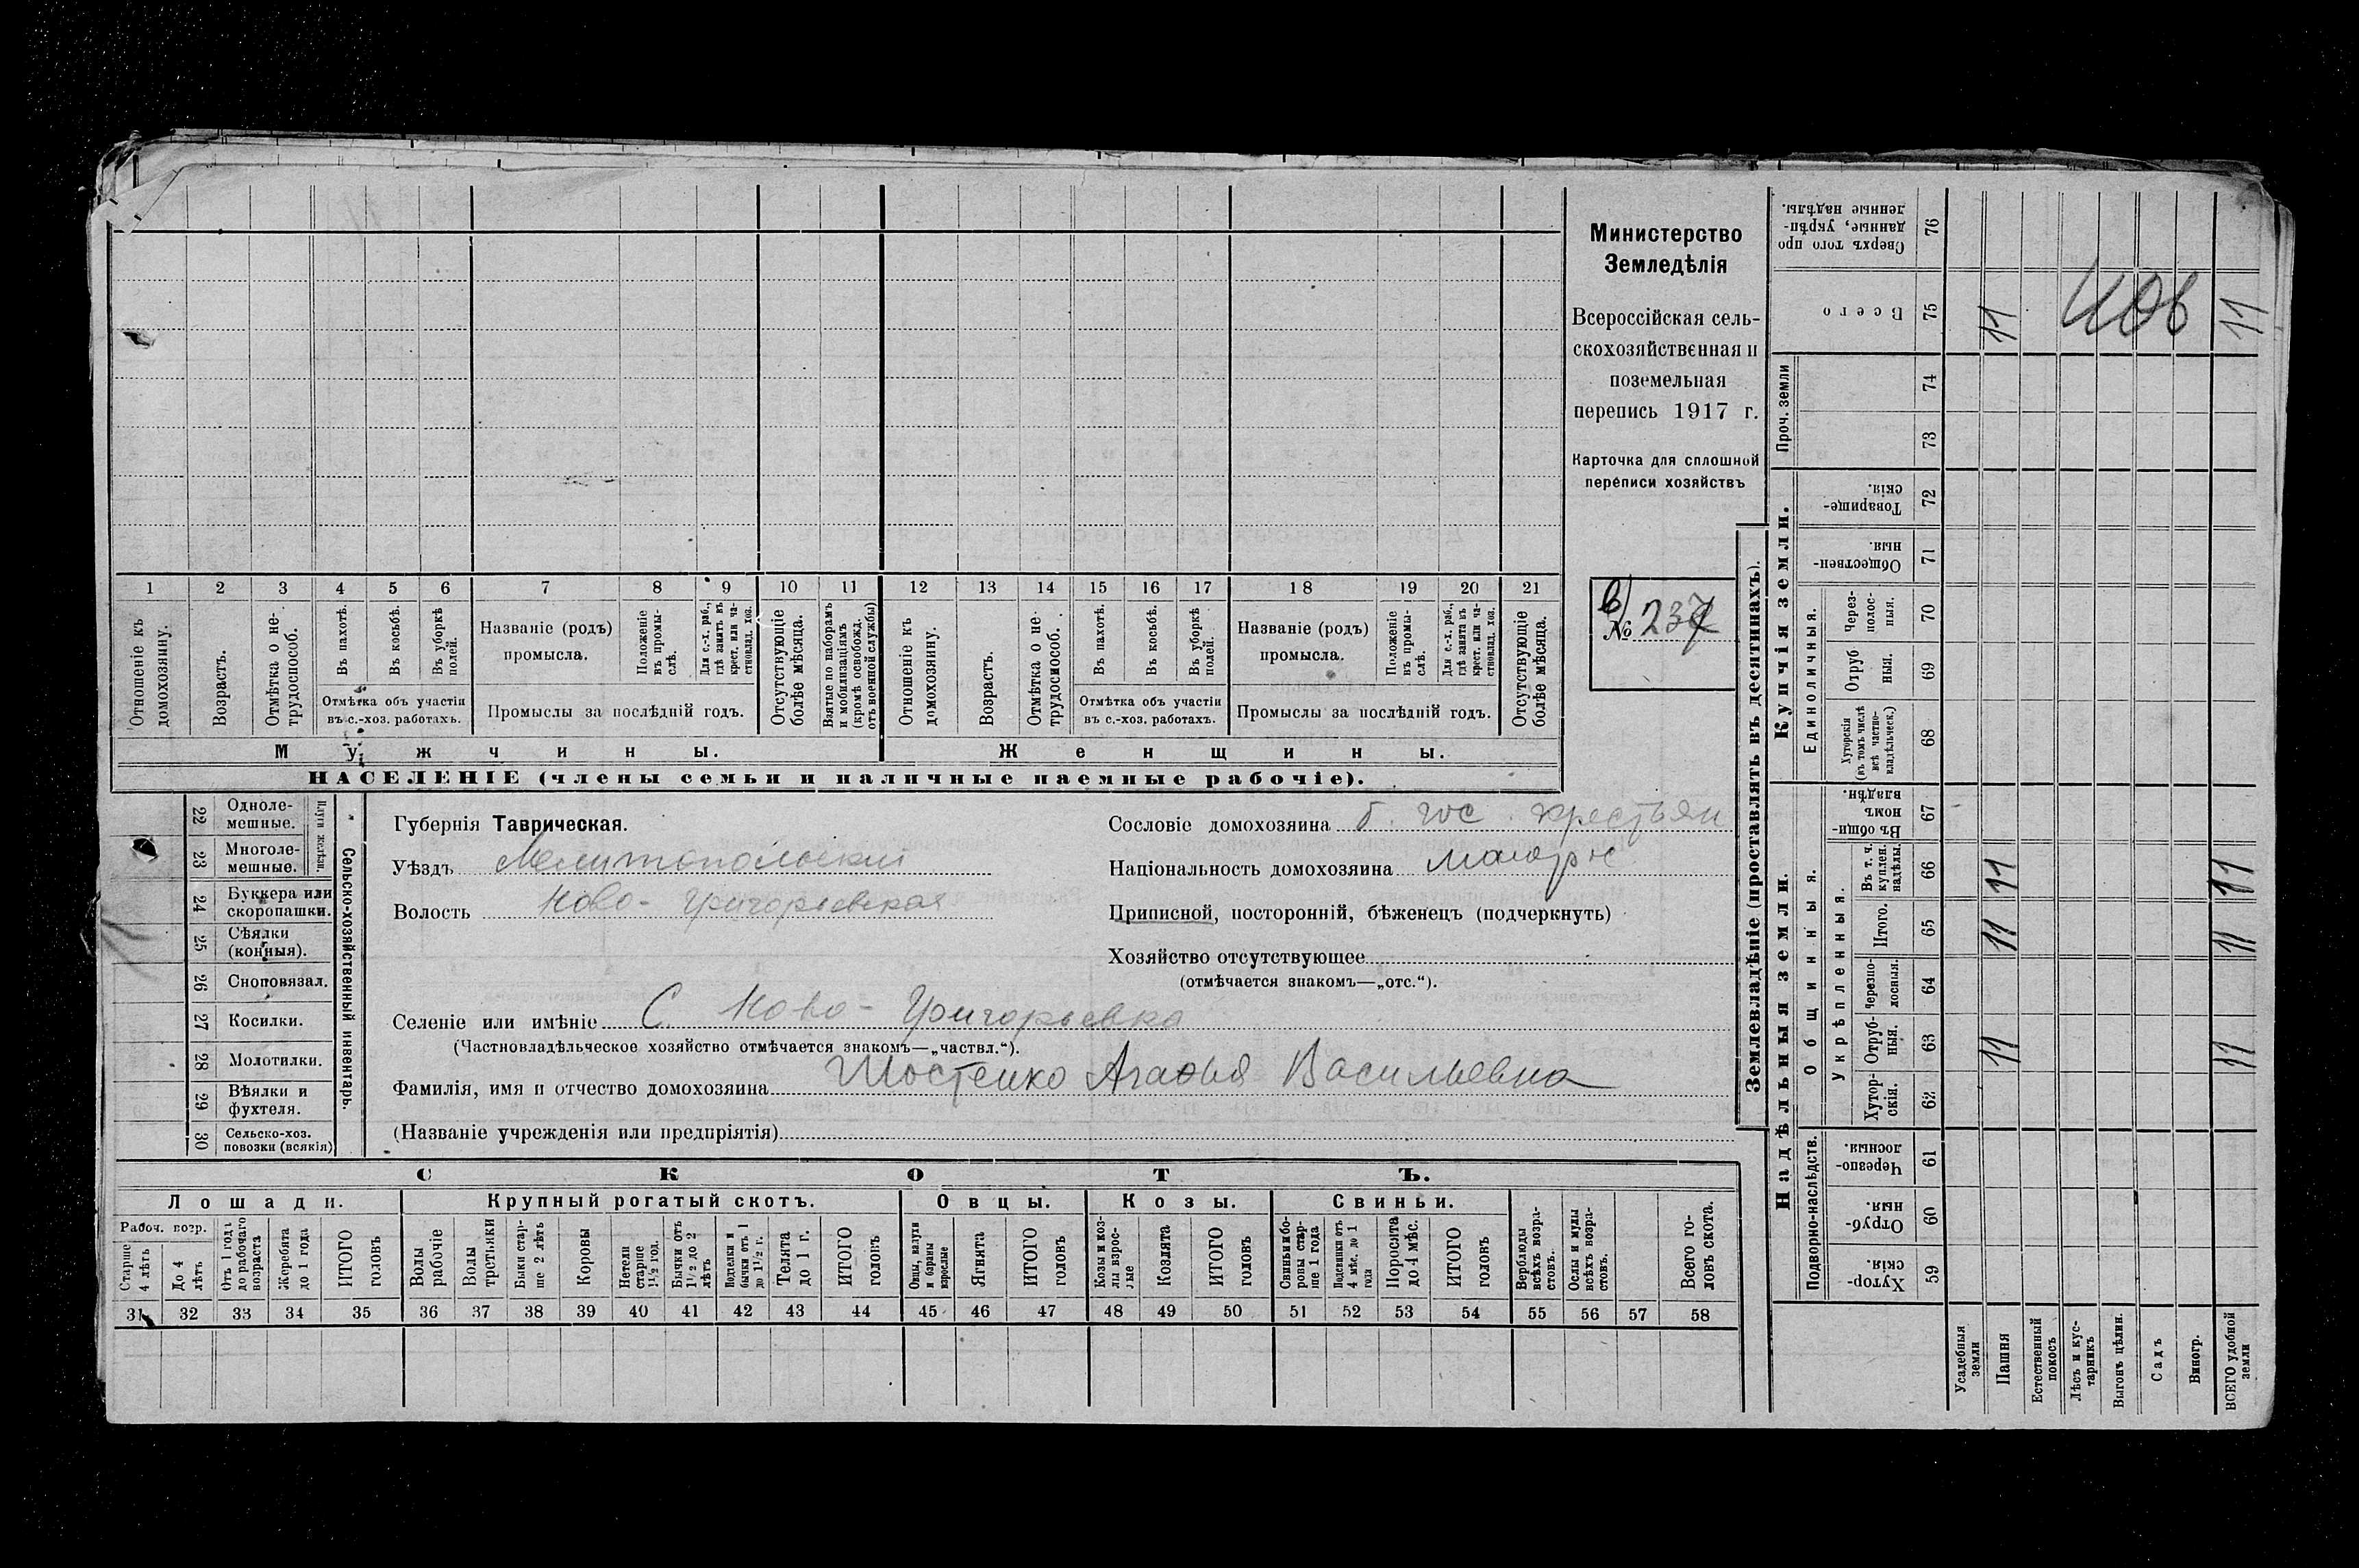 1 2 3 4 5 6 7 8 9 10 11 12 13 14 15 16 17 18 19 20 21
Отношеніе къ домохозяину.
Возрастъ.
Отмѣтка о не-трудоспособ.
Въ пахотѣ.
Въ косьбѣ.
Въ уборкѣ полей.
Отмѣтка объ участіи
въ с.-хоз. работахъ.
Названіе (родъ)
промысла.
Положеніе въ промы-слѣ.
Для с.-х. раб., гдѣ занятъ въ крест. или ча-стновлад. хоз.
Промыслы за послѣдній годъ.
Отсутствующіе болѣе мѣсяца.
Взятые по наборамъ и мобилизаціямъ (кромѣ освобожд. отъ военной службы)
Отношеніе къ домохозяину.
Возрастъ.
Отмѣтка о не-трудоспособ.
Въ пахотѣ.
Въ косьбѣ.
Въ уборкѣ полей.
Отмѣтка объ участіи
въ с.-хоз. работахъ.
Названіе (родъ)
промысла.
Положеніе въ промы-слѣ.
Для с.-х. раб., гдѣ занята въ крест. или ча-стновлад. хоз.
Промыслы за послѣдній годъ.
Отсутствующіе болѣе мѣсяца.
Мужчины.
Женщины.
НАСЕЛЕНІЕ (члены семьи и наличные наемные рабочіе).
Министерство
Земледѣлія
Всероссійская сель-
скохозяйственная и
поземельная
перепись 1917 г.
Карточка для сплошной
переписи хозяйствъ
№ 237
22 Одноле-
мешные.
23 Многоле-
мешные.
Плуги желѣзн.
24 Буккера или
скоропашки.
25 Сѣялки
(конныя).
26 Сноповязал.
27 Косилки.
28 Молотилки.
29 Вѣялки и
фухтеля.
30 Сельско-хоз.
повозки (всякія)
Сельско-хозяйственный инвентарь.
Губернія Таврическая.
Уѣздъ Мелитопольскій
Волость Ново-Григорьевская
Сословіе домохозяина б. гос. крестьян
Національность домохозяина малорус
Приписной, посторонній, бѣженецъ (подчеркнуть)
Хозяйство отсутствующее
(отмѣчается знакомъ—„отс.“).
Селеніе или имѣніе С. Ново-Григорьевка
(Частновладѣльческое хозяйство отмѣчается знакомъ—„частвл.“).
Фамилія, имя и отчество домохозяина Шостенко Агафья Васильевна
(Названіе учрежденія или предпріятія)
СКОТЪ.
Лошади.
Крупный рогатый скотъ.
Овцы.
Козы.
Свиньи.
Рабоч. возр.
Старше 4 лѣтъ
До 4 лѣтъ
Отъ 1 года до рабочаго возраста
Жеребята до 1 года
ИТОГО головъ
Волы рабочіе
Волы третьяки
Быки стар-ше 2 лѣтъ
Коровы
Нетели старше 1½ год.
Бычки отъ 1½ до 2 лѣтъ
Подтелки и бычки отъ 1 до 1½ г.
Телята до 1 г.
ИТОГО головъ
Овцы, валухи и бараны взрослые
Ягнята
ИТОГО головъ
Козы и коз-лы взрос-лые
Козлята
ИТОГО головъ
Свиньи и бо-ровы стар-ше 1 года
Подсвинки отъ 4 мѣс. до 1 года
Поросята до 4 мѣс.
ИТОГО головъ
Верблюды всѣхъ возра-стовъ.
Ослы и мулы всѣхъ возра-стовъ.
Всего го-ловъ скота.
31 32 33 34 35 36 37 38 39 40 41 42 43 44 45 46 47 48 49 50 51 52 53 54 55 56 57 58
Землевладѣніе (проставлять въ десятинахъ).
Надѣльныя земли.
Купчія земли.
Проч. земли
Подворно-наслѣдств.
Общинныя.
Укрѣпленныя.
Единоличныя.
Хутор-скія. 59
Отруб-ныя. 60
Черезпо-лосныя. 61
Хутор-скія. 62
Отруб-ныя. 63 11 11
Черезпо-лосныя. 64
Итого. 65 11 11
Въ т. ч. куплен. надѣлы. 66 11 11
Въ общи-номъ владѣн. 67
Хуторскія (въ томъ числѣ всѣ частно-владѣльческ.) 68
Отруб ныя. 69
Через-полос-ныя. 70
Обществен-ныя. 71
Товарище-скія. 72
73
74
Всего 75 11 11
Сверхъ того про данные, укрѣп-ленные надѣлы. 76
Усадебныя земли
Пашня
Естественный покосъ
Лѣсъ и кус-тарникъ
Выгонъ цѣлин.
Садъ
Виногр.
ВСЕГО удобной земли